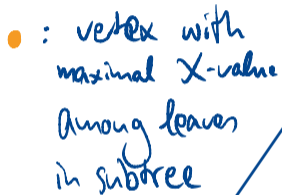 : vertex with
maximal X-value
among leaves
in subtree